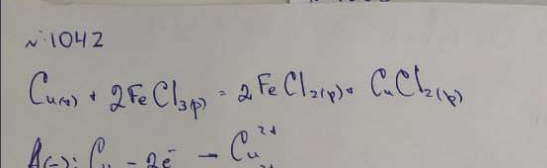 №1042
Cu(т) + 2FeCl3(р) = 2FeCl2(р) + CuCl2(р)
A(-): Cu - 2e̅ → Cu²⁺